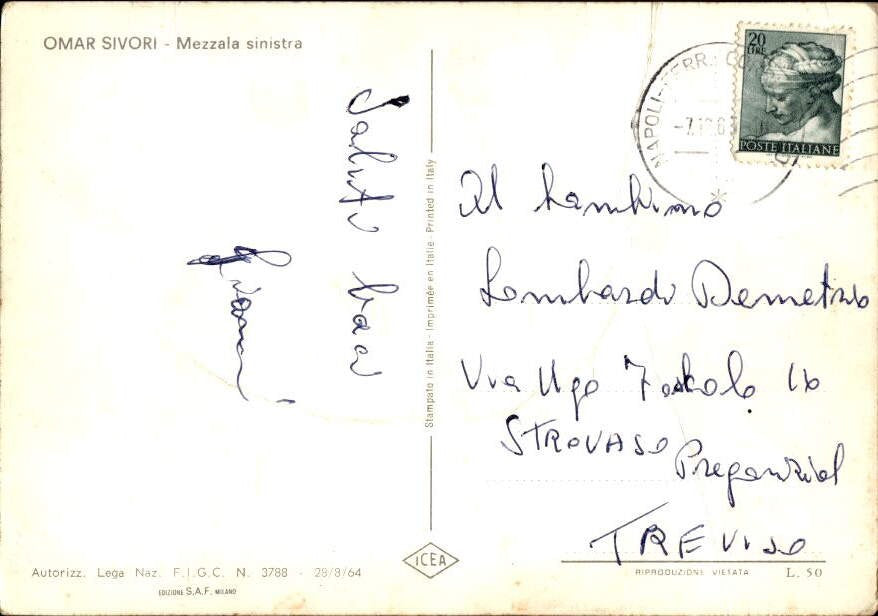 OMAR SIVORI - Mezzala sinistra
Saluti baci
Gianni
Stampato in Italia - Imprimée en Italie - Printed in Italy
20
LIRE
POSTE ITALIANE
NAPOLI-FERR.
-7.12.6
Al bambino
Lombardi Demetrio
Via Ugo Foskolo 16
STROVASO
Preganziol
TREVISO
ICEA
Autorizz. Lega Naz. F.I.G.C. N. 3788 - 29/8/64
EDIZIONE S.A.F. MILANO
RIPRODUZIONE VIETATA L. 50